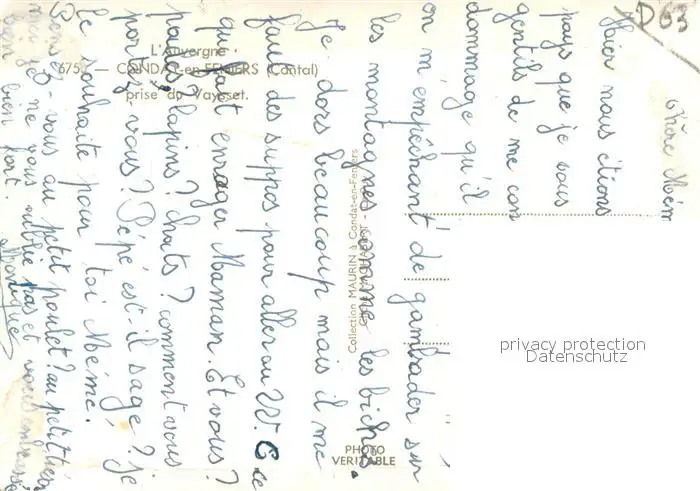 chère Mém
Hier nous étions
pays que je vous
gentils de me con
dommage qu'il
on m'empêchant de gambader sur
les montagnes comme les biches.
Je dors beaucoup mais il me
faut des suppos pour aller au W. C ce
qui fait enrager Maman. Et vous?
poules? lapins? chats? comment vous
portez vous? Pépé est-il sage? Je
le souhaite pour toi Mémé.
Pensez-vous au petit poulet? au petit
moi je ne vous oublie pas et vous embrasse
bien bien fort.
Monique
D63
L'Auvergne
675. — CONDAT-en-FENIERS (Cantal)
prise du Vaysset.
Collection MAURIN à Condat-en-Feniers
PHOTO
VERITABLE
privacy protection
Datenschutz